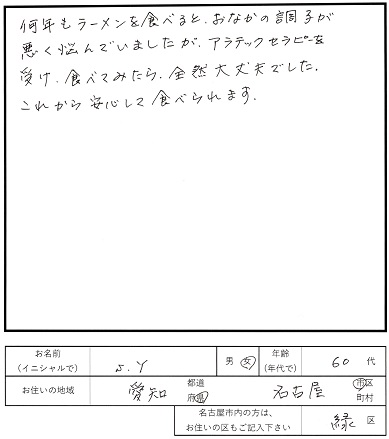 何年もラーメンを食べると、おなかの調子が
悪く悩んでいましたが、アラテックセラピーを
受け、食べてみたら、全然大丈夫でした。
これから安心して食べられます。
お名前
(イニシャルで)
S.Y
男 女
年齢
(年代で)
60 代
お住いの地域
愛知
都道
府県
名古屋
市区
町村
名古屋市内の方は、
お住いの区もご記入下さい
緑 区